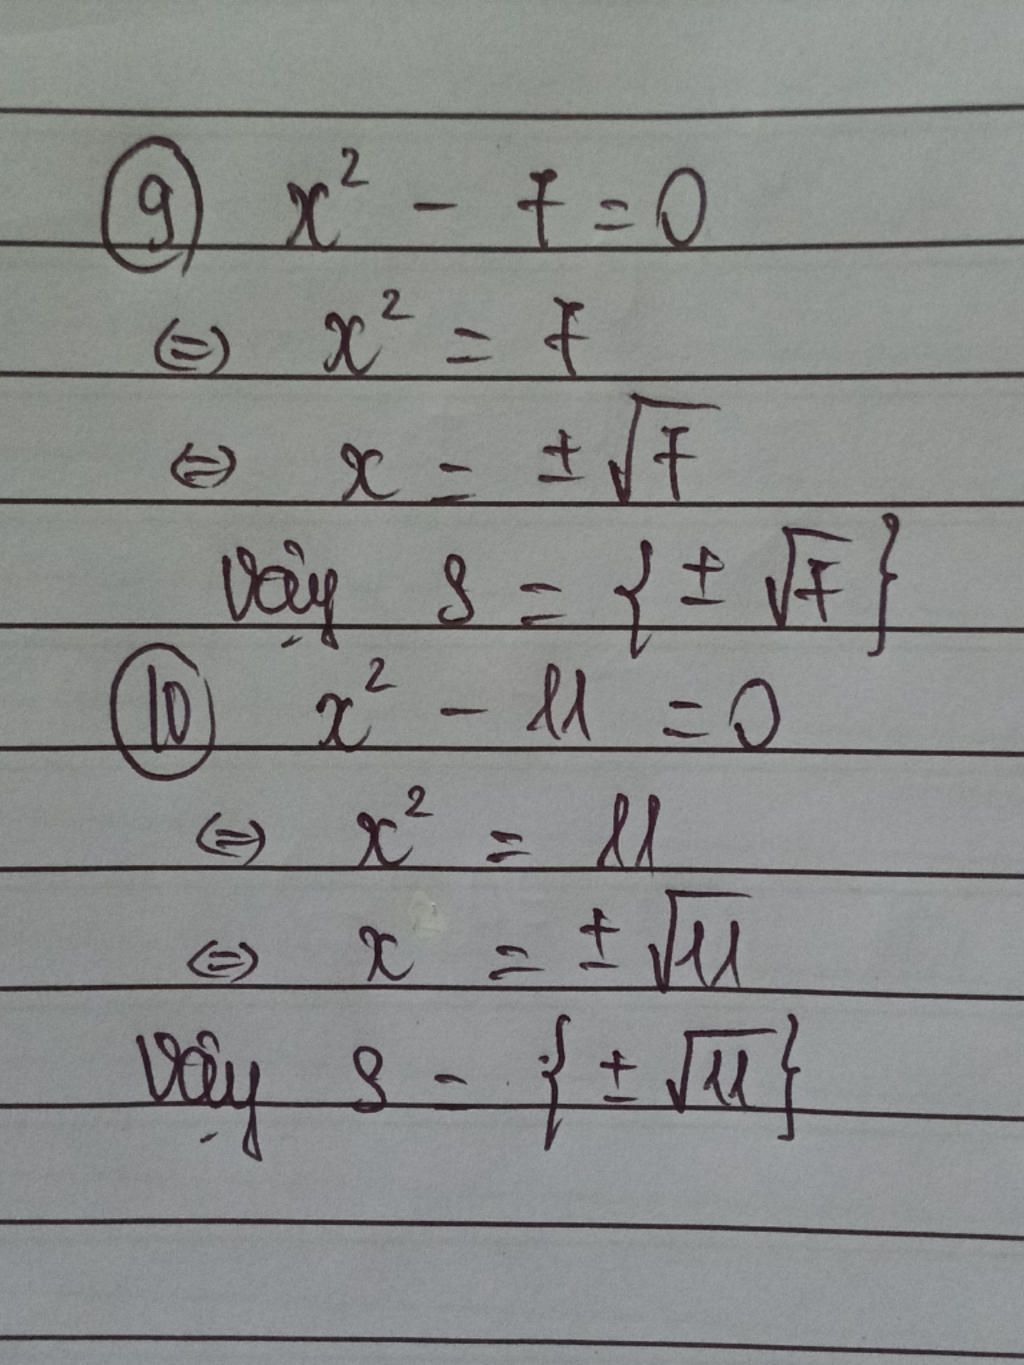 ⑨ x² - 7 = 0
⇔ x² = 7
⇔ x = ±√7
Vậy S = {± √7}
⑩ x² - 11 = 0
⇔ x² = 11
⇔ x = ±√11
Vậy S = {± √11}